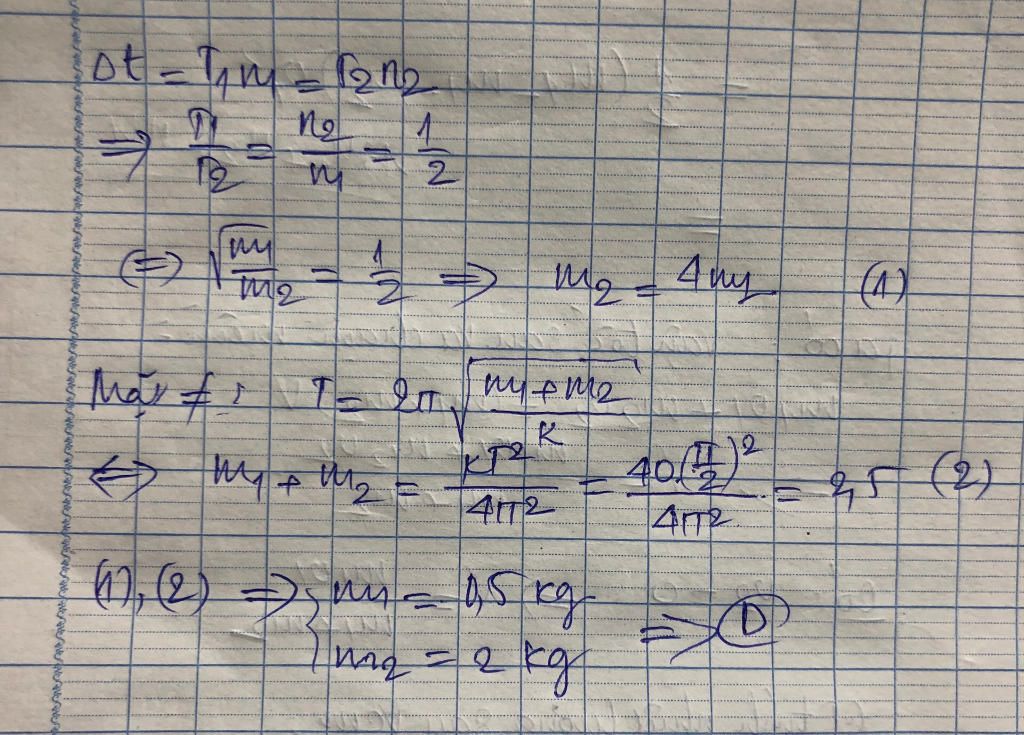 Δt = T₁n₁ = T₂n₂
⇒ T₁/T₂ = n₂/n₁ = 1/2
(⇒) √(m₁/m₂) = 1/2 ⇒ m₂ = 4m₁ (1)
Mặt ≠ : T = 2π√((m₁+m₂)/K)
⇔ m₁ + m₂ = kT²/4π² = 40.(π/2)²/4π² = 2,5 (2)
(1), (2) ⇒ { m₁ = 0,5 kg
m₂ = 2 kg ⇒ D